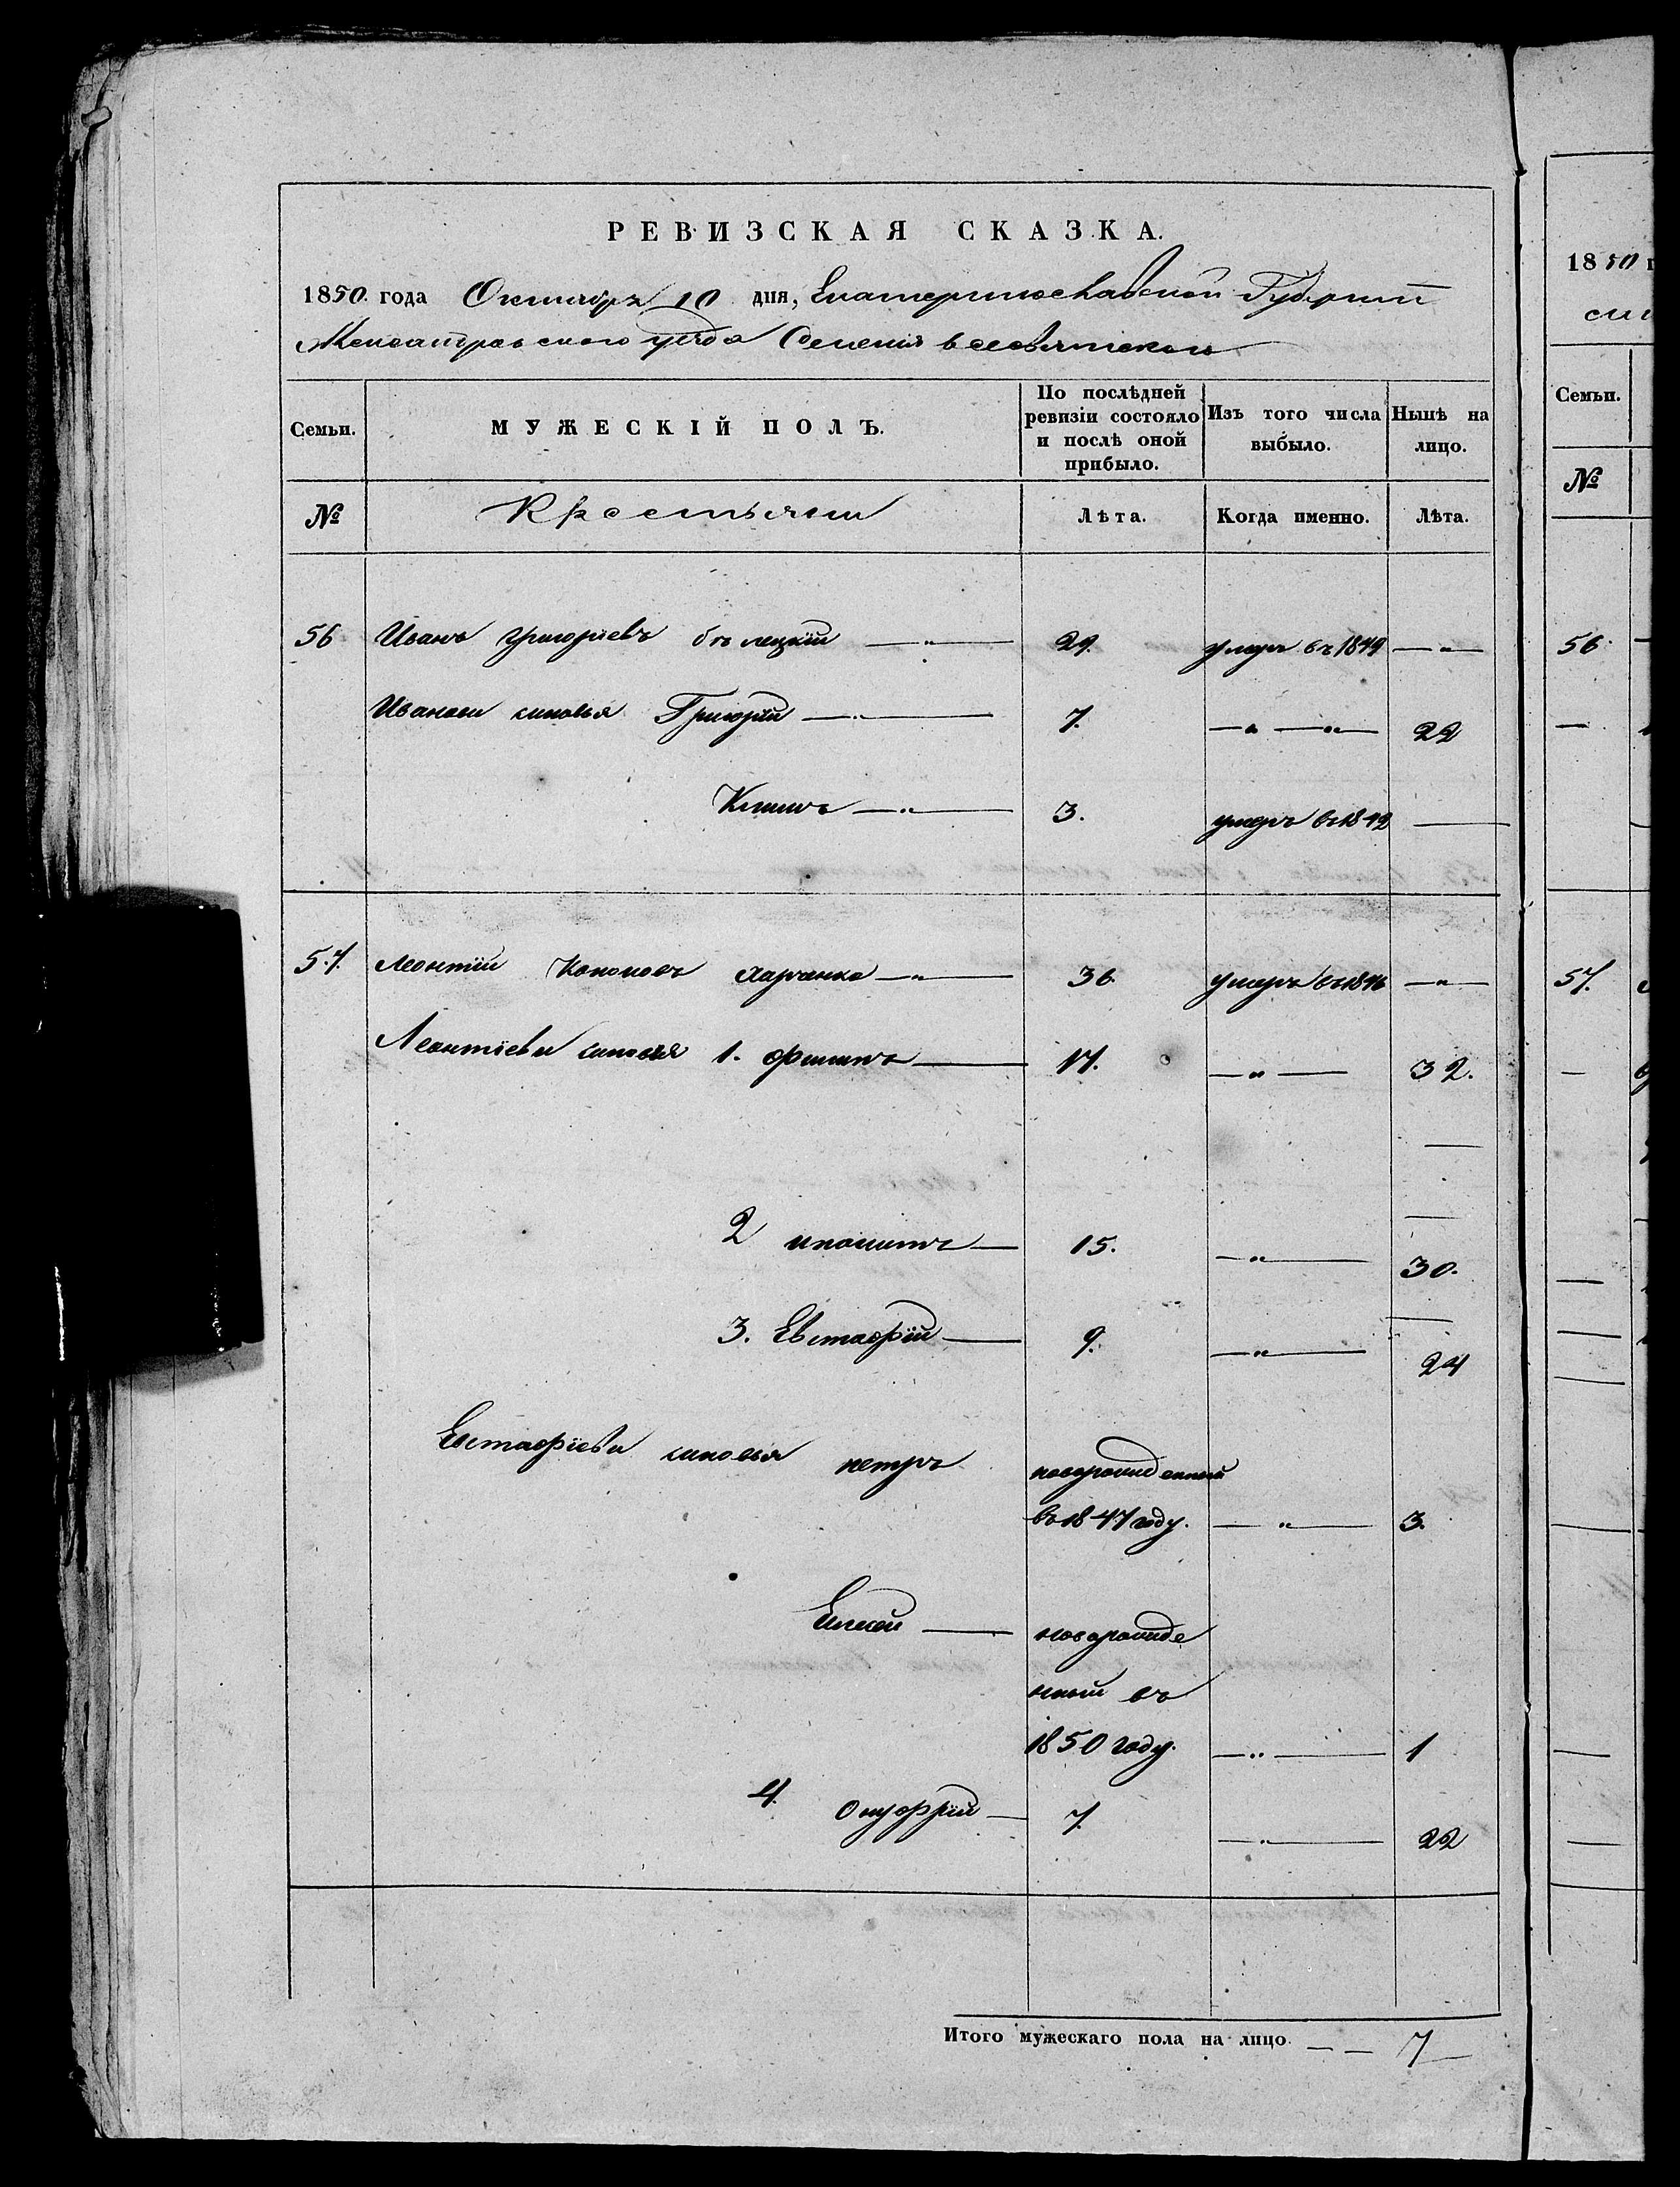 РЕВИЗСКАЯ СКАЗКА.
1850. года Октября 10 дня, Екатеринославской Губернии
Александровского уезда Селения всесвятского
Семьи.
МУЖЕСКІЙ ПОЛЪ.
По послѣдней ревизіи состояло и послѣ оной прибыло.
Изъ того числа выбыло.
Нынѣ на лицо.
№
Крестьяни
Лѣта.
Когда именно.
Лѣта.
56 Иванъ Григоріевъ бѣлецкій —„— 29. умеръ въ 1849 —„—
Ивановы синовья Григорій —„— 7. —„—„— 22
Климъ —„— 3. умеръ въ 1842 —
57. Леонтій Кононовъ Харчанко —„— 36 умеръ въ 1846 —„—
Леонтіевы синовья 1. Филипъ — 17. —„— 32.
2 иполитъ — 15. —„— 30.
3. Евстафій — 9. —„— 24
Евстафіевы синовья петръ новорожденный
въ 1847 году. —„— 3.
Елисей — новорожде
нный въ
1850 году. —„— 1
4. Онуфрій — 7. —„— 22
Итого мужескаго пола на лицо — — 7
1850 г
Семьи.
№
56
57.